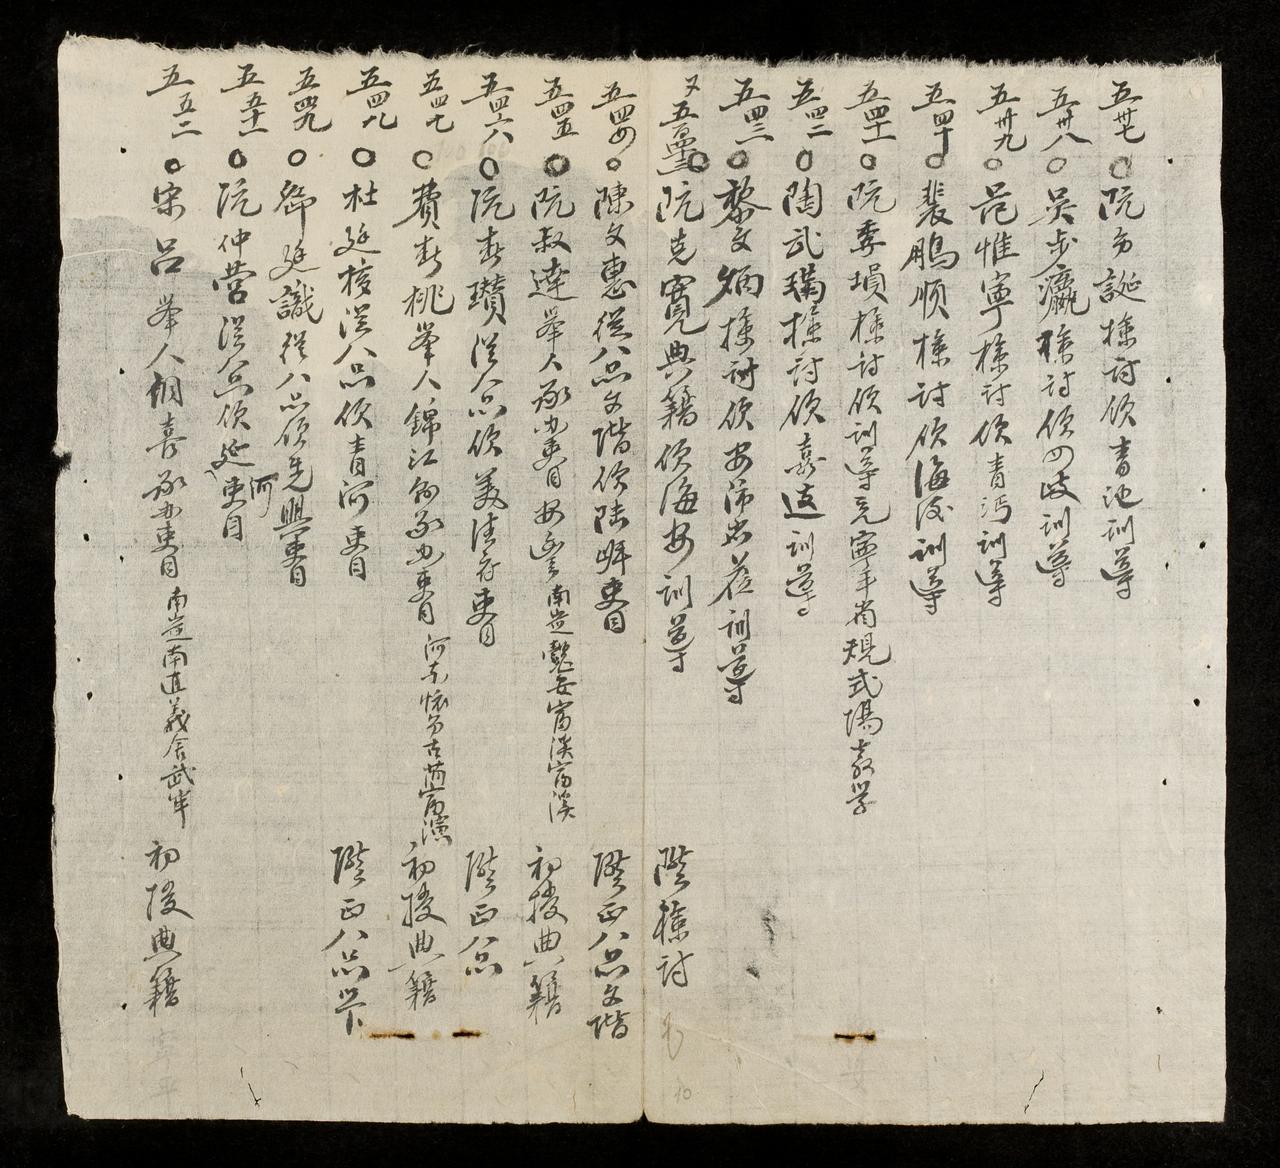 五卅七 ○ 阮為誕 檢討 領青池訓導
五卅八 ○ 吳步瀛 檢討 領四岐訓導
五卅九 ○ 范惟寧 檢討 領青沔訓導
五四十 ○ 裴鵬順 檢討 領海後訓導
五四十一 ○ 阮季塤 檢討 領訓導充寧平省規式場教學
五四二 ○ 陶武璊 檢討 領嘉遠訓導
五四三 ○ 黎文炳 檢討 領安沛 訓導
又五四三 ○ 阮克寬 典籍 領海安訓導 陞檢討
五四四 ○ 陳文惠 從八品文階領陸岸吏目 陞正八品文階
五四五 ○ 阮叔達 舉人 承办吏目 安 南定懿安富溪富溪 初授典籍
五四六 ○ 阮春瓚 從八品領美 吏目 陞正八品
五四七 ○ 費春桃 舉人 錦江 承办吏目 河東懷 古 富演 初授典籍
五四八 ○ 杜廷 從八品領青河吏目 陞正八品
五四九 ○ 鄧廷識 從八品領先興吏目
五五十一 ○ 阮仲營 從八品領延河吏目
五五二 ○ 宋呂 舉人 承办吏目 南定南直義舍武 初授典籍